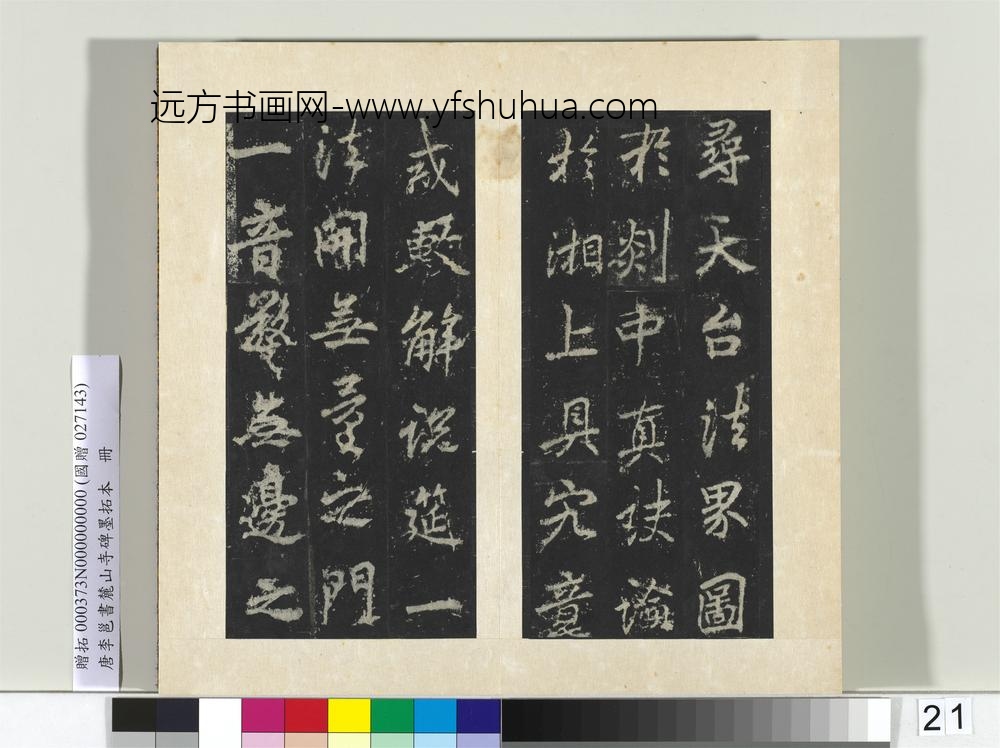 远方书画网-www.yfshuhua.com
尋天台法界圖
於剡中真訣論
於湘上具究竟
戒敷解說筵一
法開無量之門
一音警無邊之
贈拓 000373N000000000 (國贈 027143)
唐李邕書麓山寺碑墨拓本 冊
21